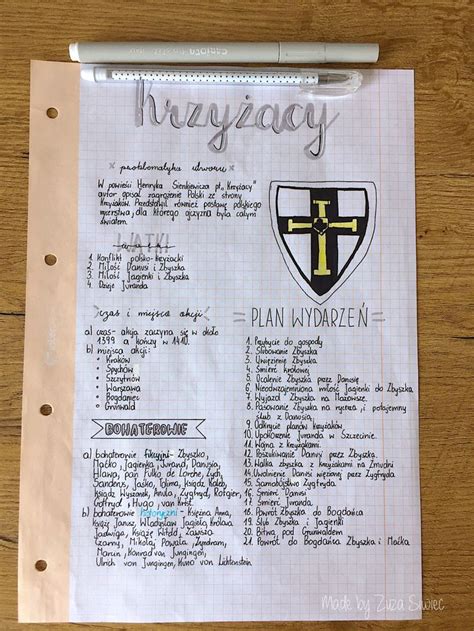 Krzyżacy
problematyka utworu
W powieści Henryka Sienkiewicza pt. „Krzyżacy”
autor opisał zagrożenie Polski ze strony
Krzyżaków. Przedstawił również postawę polskiego
mężczyzny, dla którego ojczyzna była całym
światem.
WĄTKI
1. Konflikt polsko-krzyżacki
2. Miłość Danusi i Zbyszka
3. Miłość Jagienki i Zbyszka
4. Dzieje Juranda
czas i miejsca akcji
a) czas- akcja zaczyna się w około
1399 a kończy w 1410.
b) miejsca akcji:
• Kraków
• Spychów
• Szczytnów
• Warszawa
• Bogdaniec
• Grunwald
BOHATEROWIE
a) bohaterowie fikcyjni- Zbyszko,
Maćko, Jagienka, Jurand, Danusia,
Hlawa, Pan Fulko de Lorche, Zych,
Sanderus, Jaśko, Tolima, ksiądz Kaleb,
Ksiądz Wyszoniek, Anula, Zygfryd, Rotgier,
Gotfryd, Hugo, van Krist.
b) bohaterowie historyczni - Księżna Anna,
Książę Janusz, Władysław Jagiełło, Królowa
Jadwiga, Książę Witold, Zawisza
Czarny, Mikołaj, Powała, Zyndram,
Marcin, Konrad von Jungingen,
Ulrich von Jungingen, Kuno von Lichtenstein.
PLAN WYDARZEŃ
1. Przybycie do gospody
2. Ślubowanie Zbyszka
3. Uwięzienie Zbyszka
4. Śmierć królowej
5. Ocalenie Zbyszka przez Danusię
6. Nieodwzajemniona miłość Jagienki do Zbyszka
7. Wyjazd Zbyszka na Mazowsze.
8. Pasowanie Zbyszka na rycerza i potajemny
ślub z Danusią.
9. Odkrycie planów krzyżaków
10. Upokorzenie Juranda w Szczytnie.
11. Wojna z krzyżakami.
12. Poszukiwanie Danusi przez Zbyszka.
13. Walka Zbyszka z krzyżakami na Żmudzi
14. Uwolnienie Danusi więzionej przez Zygfryda.
15. Samobójstwo Zygfryda.
16. Śmierć Danusi
17. Śmierć Juranda.
18. Powrót Zbyszka do Bogdańca
19. Ślub Zbyszka i Jagienki
20. Bitwa pod Grunwaldem
21. Powrót do Bogdańca Zbyszka i Maćka
Made by Zuza Siwiec